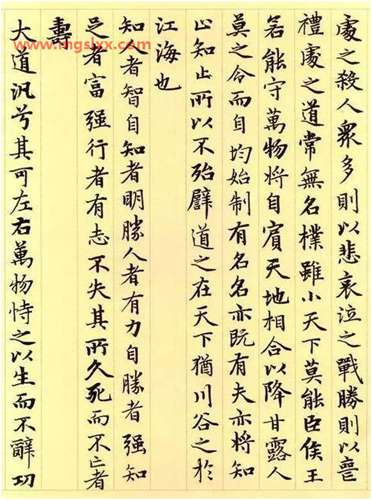 www.mgslxx.com
處之殺人眾多則以悲哀泣之戰勝則以喪
禮處之道常無名樸雖小天下莫能臣侯王
若能守萬物將自賓天地相合以降甘露人
莫之令而自均始制有名名亦既有夫亦將知
止知止所以不殆譬道之在天下猶川谷之於
江海也
知人者智自知者明勝人者有力自勝者強知
足者富強行者有志不失其所久死而不亡者
壽
大道汎兮其可左右萬物恃之以生而不辭功